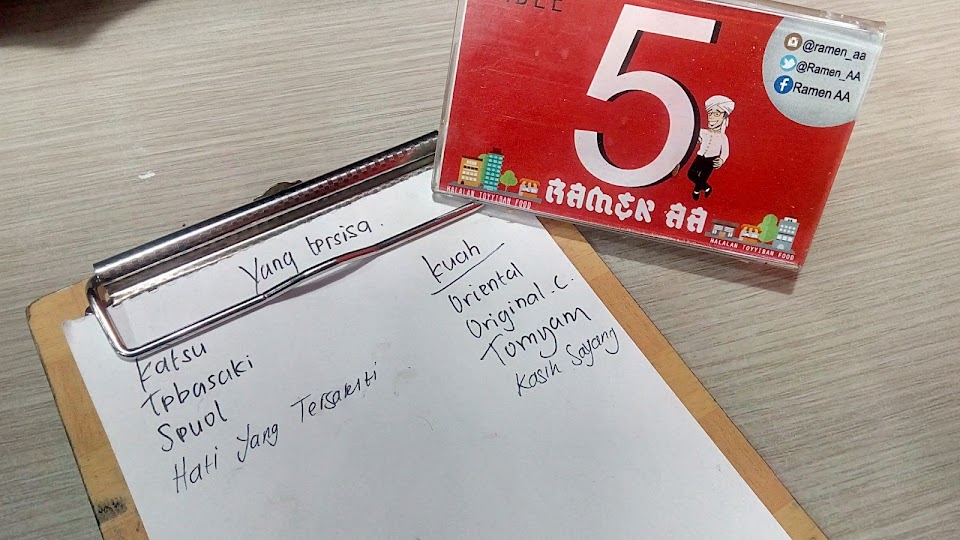 TABLE
5
@ramen_aa
@Ramen_AA
Ramen AA
HALALAN TOYYIBAN FOOD
RAMEN AA
HALALAN TOYYIBAN FOOD
Yang tersisa.
Katsu
Tebasaki
Seuol
Hati Yang Tersakiti
Kuah
Oriental
Original.C.
Tomyam
Kasih Sayang